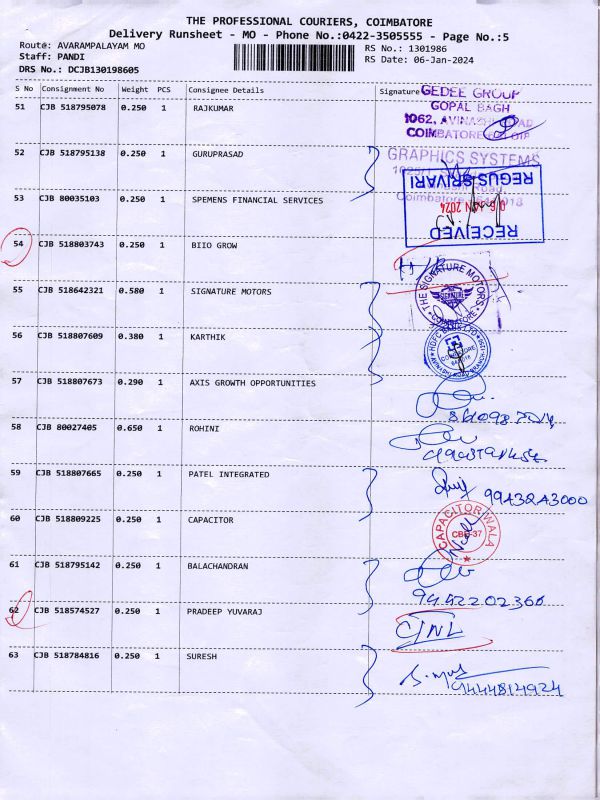 THE PROFESSIONAL COURIERS, COIMBATORE
Delivery Runsheet - MO - Phone No.:0422-3505555 - Page No.:5
Route: AVARAMPALAYAM MO
Staff: PANDI
DRS No.: DCJB130198605
RS No.: 1301986
RS Date: 06-Jan-2024
S No Consignment No Weight PCS Consignee Details Signature
GEDEE GROUP
GOPAL BAGH
51 CJB 518795078 0.250 1 RAJKUMAR
52 CJB 518795138 0.250 1 GURUPRASAD
GRAPHICS SYSTEMS
REGUS SRIVARI
06 JAN 2024
RECEIVED
53 CJB 80035103 0.250 1 SPEMENS FINANCIAL SERVICES
54 CJB 518803743 0.250 1 BIIO GROW
55 CJB 518642321 0.580 1 SIGNATURE MOTORS
THE SIGNATURE MOTORS
COIMBATORE
56 CJB 518807609 0.380 1 KARTHIK
57 CJB 518807673 0.290 1 AXIS GROWTH OPPORTUNITIES
58 CJB 80027405 0.650 1 ROHINI
59 CJB 518807665 0.250 1 PATEL INTEGRATED
60 CJB 518809225 0.250 1 CAPACITOR
CAPACITOR WALA
CBE-37
61 CJB 518795142 0.250 1 BALACHANDRAN
9442202360
62 CJB 518574527 0.250 1 PRADEEP YUVARAJ
63 CJB 518784816 0.250 1 SURESH